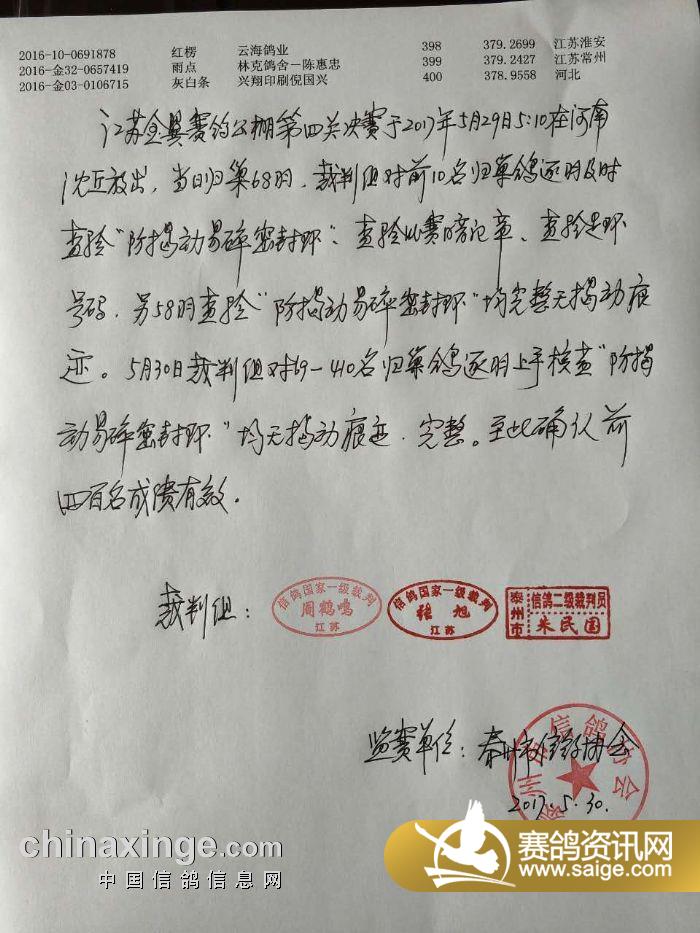 2016-10-0691878 红楞 云海鸽业 398 379.2699 江苏淮安
2016-金32-0657419 雨点 林克鸽舍－陈惠忠 399 379.2427 江苏常州
2016-金03-0106715 灰白条 兴翔印刷倪国兴 400 378.9558 河北
江苏金翼赛鸽公棚第四关决赛于2017年5月29日5:10在河南
沈丘放出，当日归巢68羽，裁判组对前10名归巢鸽逐羽及时
查验“防揭动易碎密封环”、查验比赛暗记章、查验足环
号码，另58羽查验“防揭动易碎密封环”均完整无揭动痕
迹。5月30日裁判组对69－410名归巢鸽逐羽上手核查“防揭
动易碎密封环”均无揭动痕迹，完整。至此确认前
四百名成绩有效。
裁判组：
信鸽国家一级裁判
周鹤鸣
江苏
信鸽国家一级裁判
张旭
江苏
泰州市
信鸽二级裁判员
朱民国
监赛单位：泰州市信鸽协会
2017.5.30.
泰州市信鸽协会
chinaxinge.com
中国信鸽信息网
赛鸽资讯网
www.saige.com